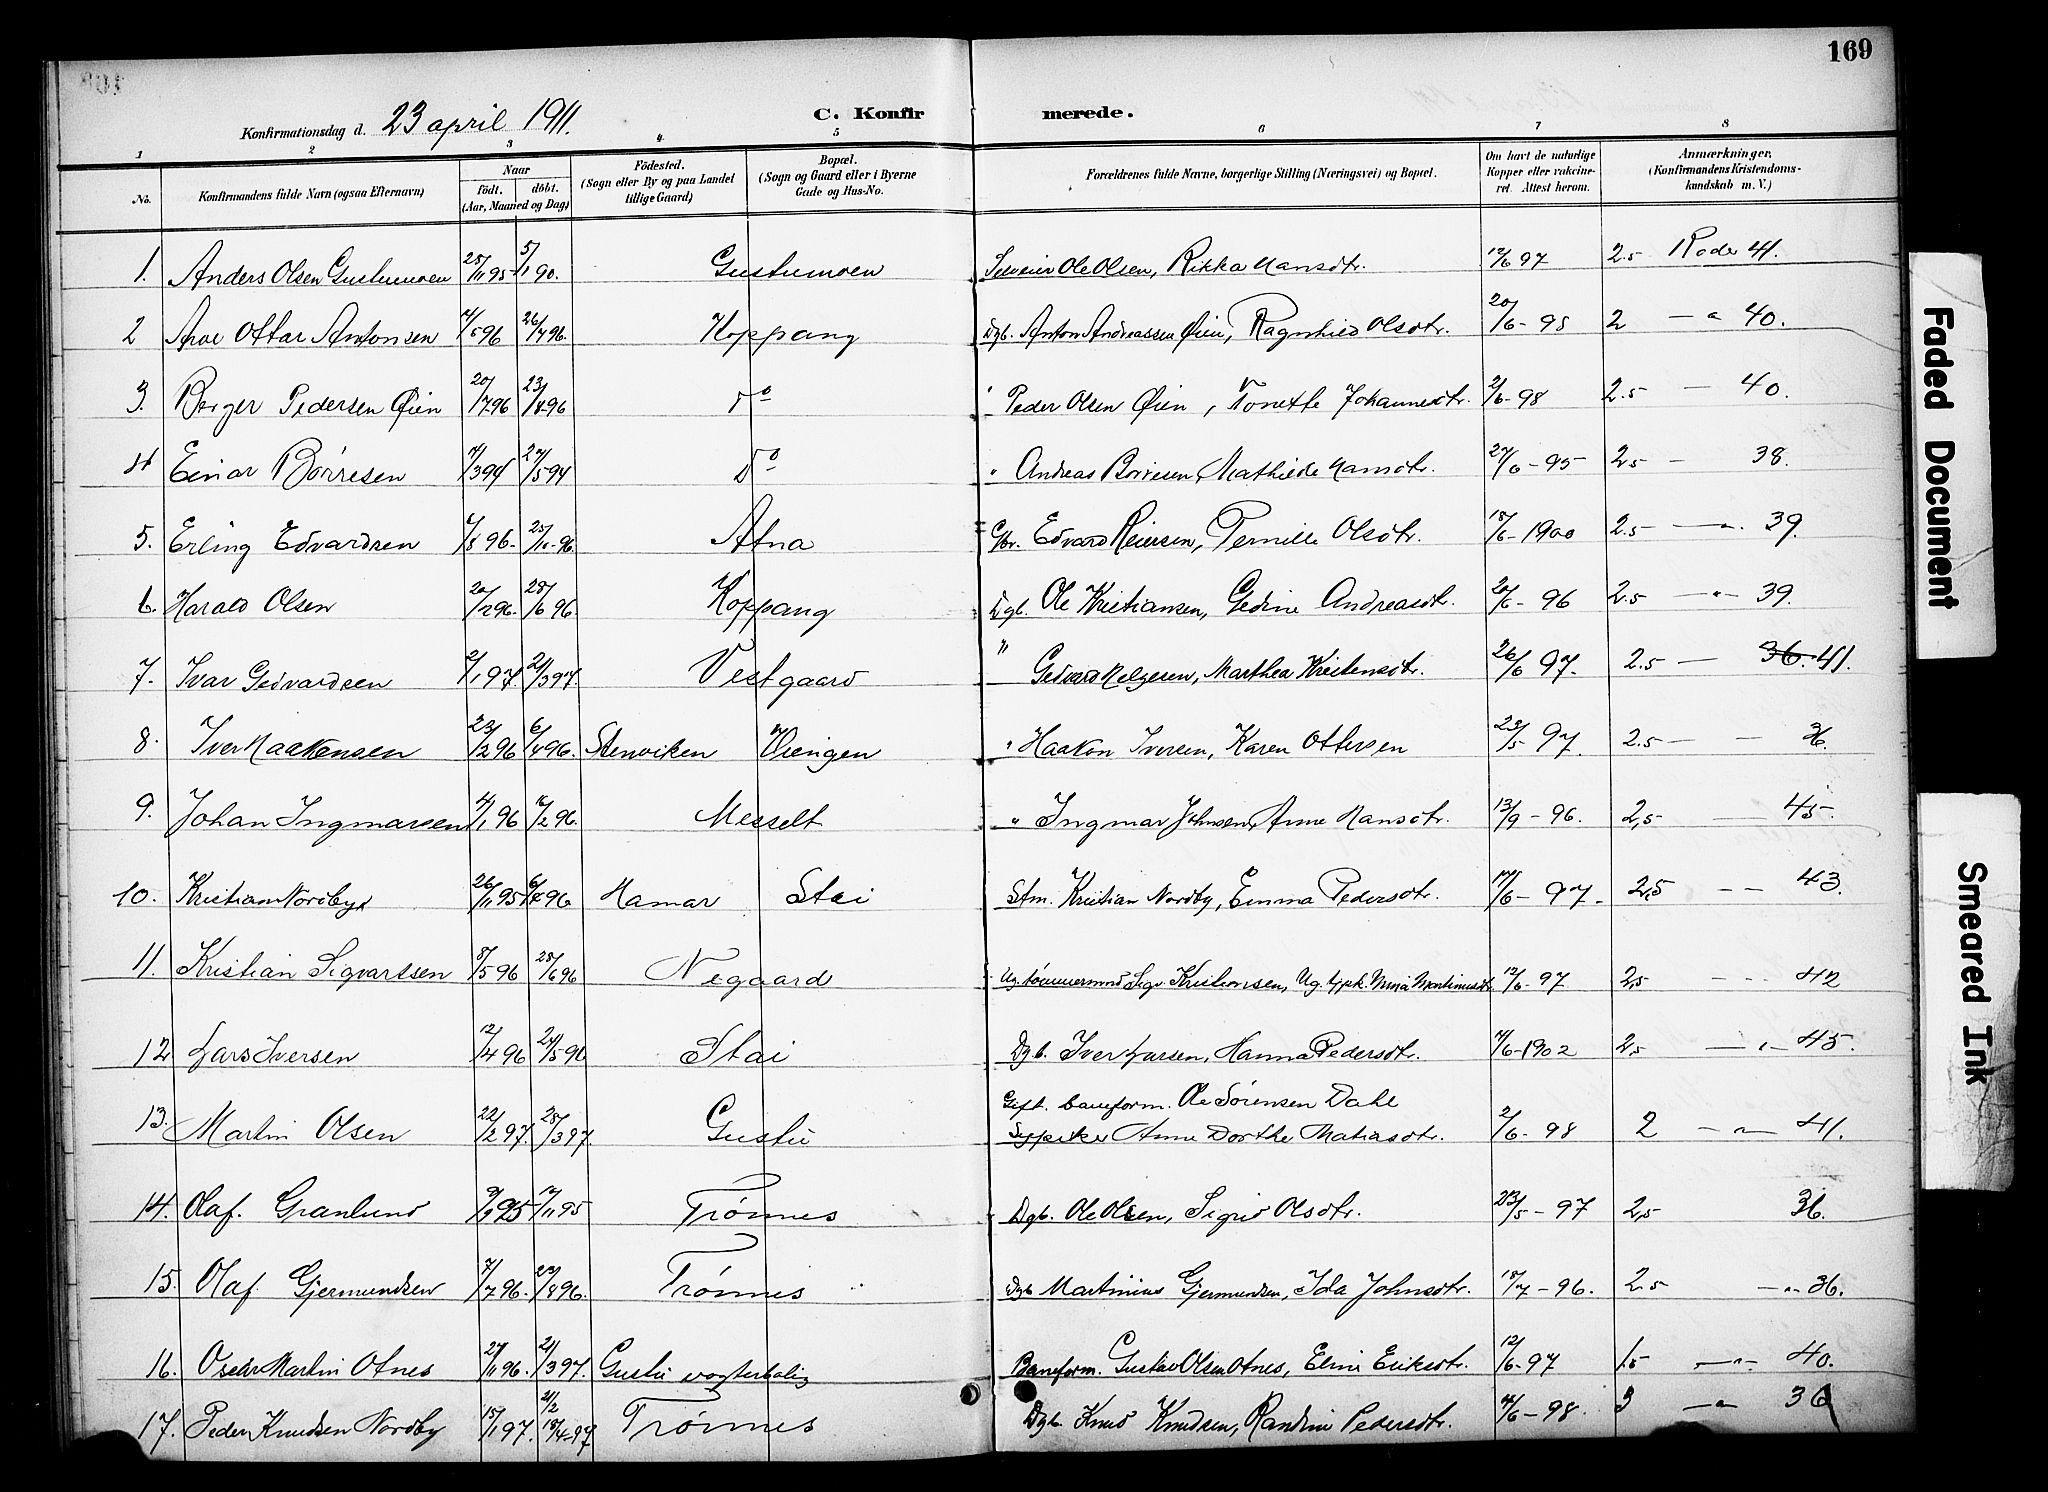 169
Konfirmationsdag d. 23 april 1911.
C. Konfirmerede.
1 2 3 4 5 6 7 8
No. Konfirmandens fulde Navn (ogsaa Efternavn) Naar født. døbt. (Aar, Maaned og Dag) Födested. (Sogn eller By og paa Landet tillige Gaard) Bopæl. (Sogn og Gaard eller i Byerne Gade og Hus-No. Forældrenes fulde Navne, borgerlige Stilling (Næringsvei) og Bopæl. Om havt de naturlige Kopper eller vakcineret. Attest herom. Anmærkninger. (Konfirmandens Kristendomskundskab m. V.)
1. Anders Olsen Gustumoen 25/11 95 5/1 90. Gustumoen Selveier Ole Olsen, Rikka Hansdtr. 12/6 97 2.5 Rode 41.
2 Arve Ottar Antonsen 14/5 96 26/7 96. Koppang Dgb. Anton Andreassen Øien, Ragnhild Olsdtr. 20/6 - 98 2 — " 40.
3. Berger Pedersen Øien 20/7 96 23/8 96 Do " Peder Olsen Øien, Tonette Johannesdtr. 2/6 - 98 2.5 — 40.
4 Einar Börresen 14/3 94 27/5 94 Do " Andreas Borresen, Mathilde Hansdtr. 27/6 - 95 2.5 — 38.
5. Erling Edvardsen 6/8 96. 25/10 96. Atna Gbr. Edvard Reiersen, Pernille Olsdtr. 18/6 - 1900 2.5 — " — 39.
6. Harald Olsen 20/2 96. 28/6 96 Koppang Dgb. Ole Kristiansen, Gedine Andreasdtr. 20/6 - 96 2.5 — " — 39.
7. Ivar Gedvardsen 2/1 97. 21/3 97. Vestgaard " Gedvard Helgesen, Marthea Kristensdtr. 26/6 97. 2.5 — 36. 41.
8. Iver Haakensen 23/2 96 6/4 96. Stenviken Osingen " Haakon Iversen, Karen Ottersen 23/5 - 97. 2.5 — — 36.
9. Johan Ingmarsen 4/1 96 16/2 96. Messelt " Ingmar Johnsen, Anne Hansdtr. 13/9 - 96. 2,5 — 45.
10. Kristian Nordby 26/11 95 6/4 96 Hamar Stai Stm. Kristian Nordby, Emma Pedersdtr. 17/6 - 97. 2,5 — — 43.
11. Kristian Sigvartsen 8/5 96 28/6 96 Negaard Ug. tömmermand Sigv. Kristiansen, Ug. tjpk. Mina Martinusdtr. 12/6 - 97 2,5 — — 42
12 Lars Iversen 12/4 96 24/5 96 Stai Dgb. Iver Larsen, Hanna Pedersdtr. 4/6 - 1902 2,5 — " — 45.
13. Martin Olsen 22/2 97. 28/3 97 Gustu Gift. baneform. Ole Sörensen Dahl
Sypike Anne Dorthe Matiasdtr. 2/6 - 98 2 — " — 41.
14. Olaf. Granlund 9/9 95 17/11 95 Trönnes Dgb. Ole Olsen, Sigrid Olsdtr. 23/5 - 97 2,5 36.
15. Olaf. Gjermundsen 7/7 96. 23/8 96. Trönnes Dgb. Martinius Gjermundsen, Ida Johnsdtr. 18/7 - 96. 2.5 — " — 36.
16. Oscar Martin Otnes 27/11 96. 21/3 97. Gustu vogterbolig Baneform. Gustav Olsen Otnes, Eline Eriksdtr. 12/6 - 97 1.5 — " — 40.
17. Peder Knudsen Nordby 15/1 97. 21/2 18/4 - 97 Trönnes Dgb. Knud Knudsen, Randine Pedersdtr. 4/6 - 98. 3 — " — 36
Faded Document
Smeared Ink